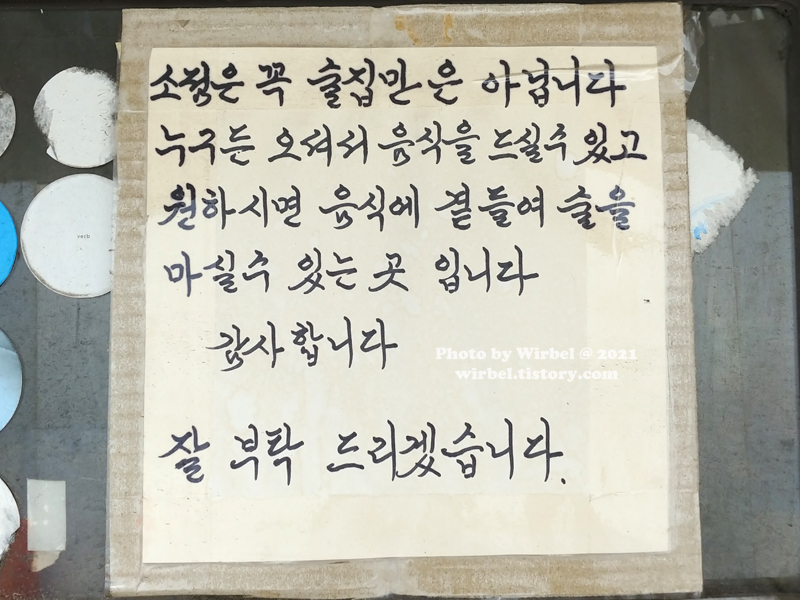 소점은 꼭 술집만은 아닙니다
누구든 오셔서 음식을 드실수 있고
원하시면 음식에 곁들여 술을
마실수 있는 곳 입니다
감사합니다
Photo by Wirbel @ 2021
wirbel.tistory.com
잘 부탁 드리겠습니다.